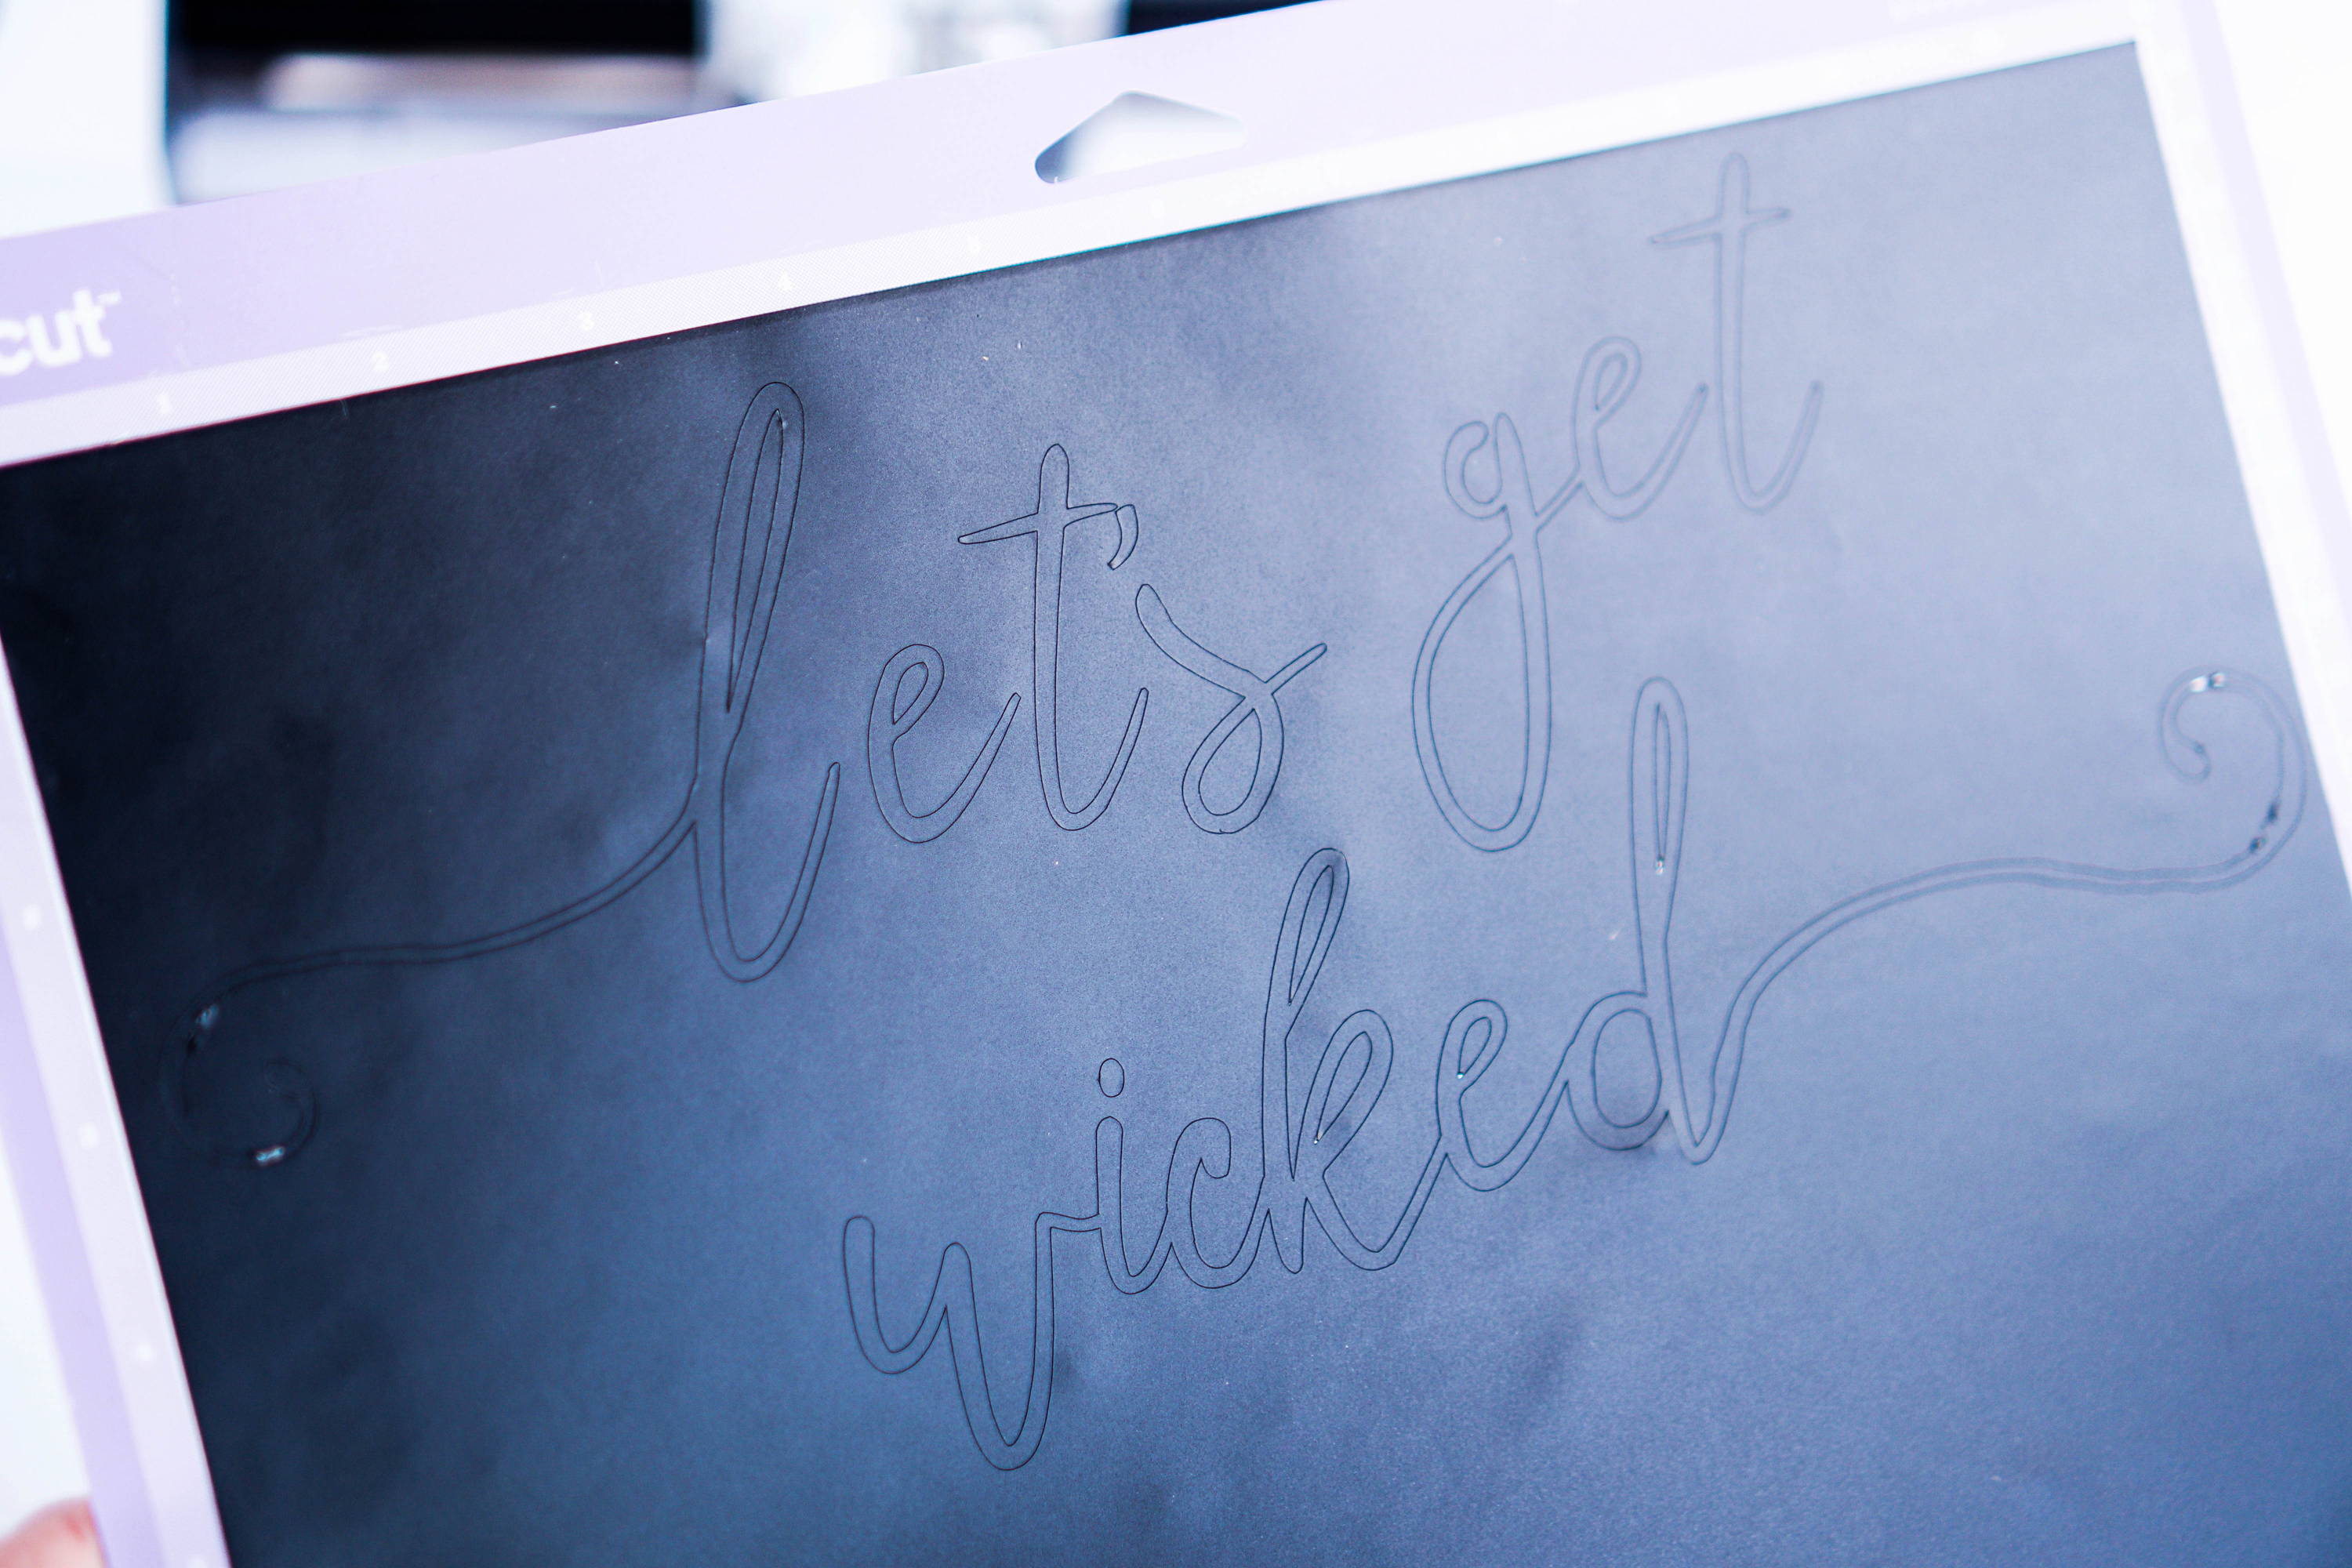 cut™
1 2 3 4 5
let's get
wicked